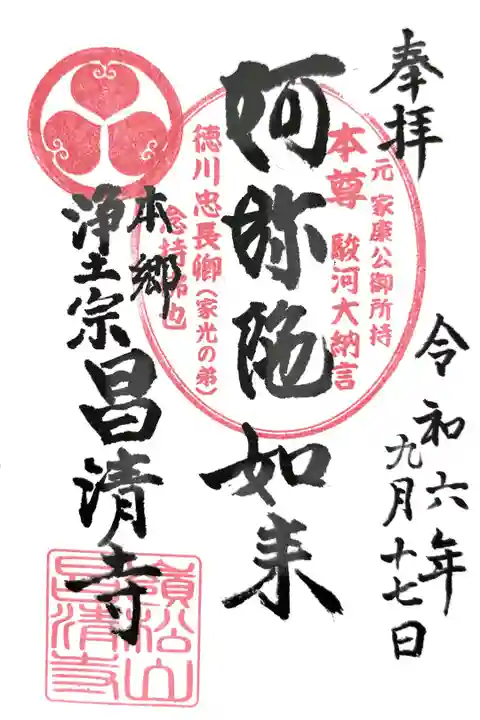 奉拝
令和六年
九月十七日
阿弥陀如来
元 家康公御所持
本尊 駿河大納言
徳川忠長卿(家光の弟)
念持佛也
本郷
浄土宗昌清寺
嶺松山
昌清寺